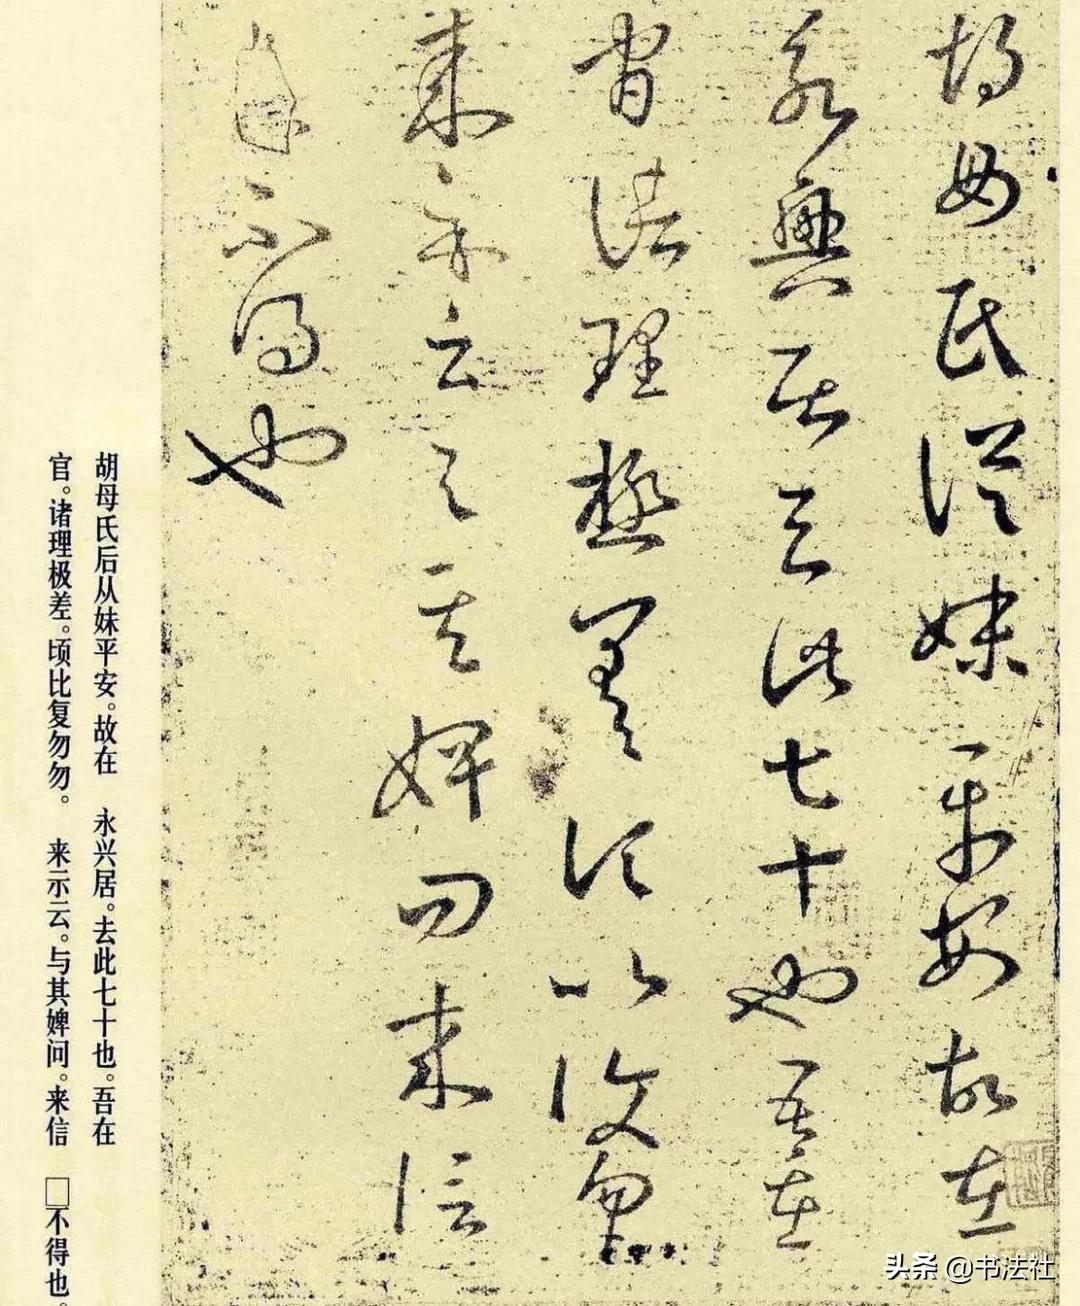 胡母氏從妹平安故在
永興居去此七十也吾在
官諸理極差頃比復勿勿
來示云與其婢問來信
不得也
胡母氏后从妹平安。故在 永兴居。去此七十也。吾在
官。诸理极差。顷比复勿勿。 来示云。与其婢问。来信 □不得也。
头条 @书法社